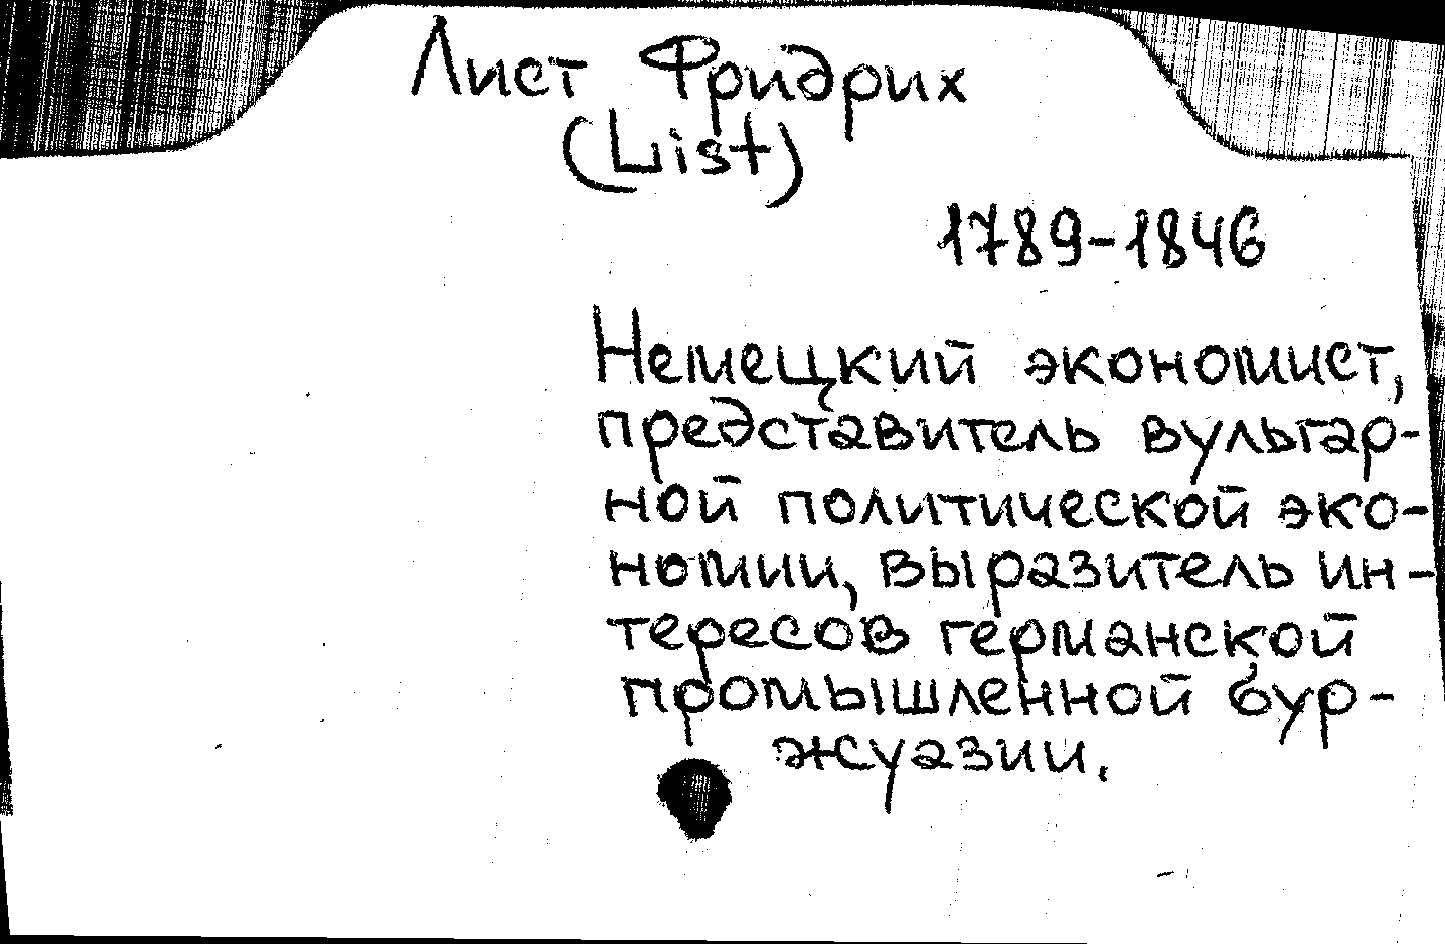 Лист Фридрих
(List)
1789-1846
Немецкий экономист,
представитель вульгар-
ной политической эко-
номии, выразитель ин-
тересов германской
промышленной бур-
жуазии.